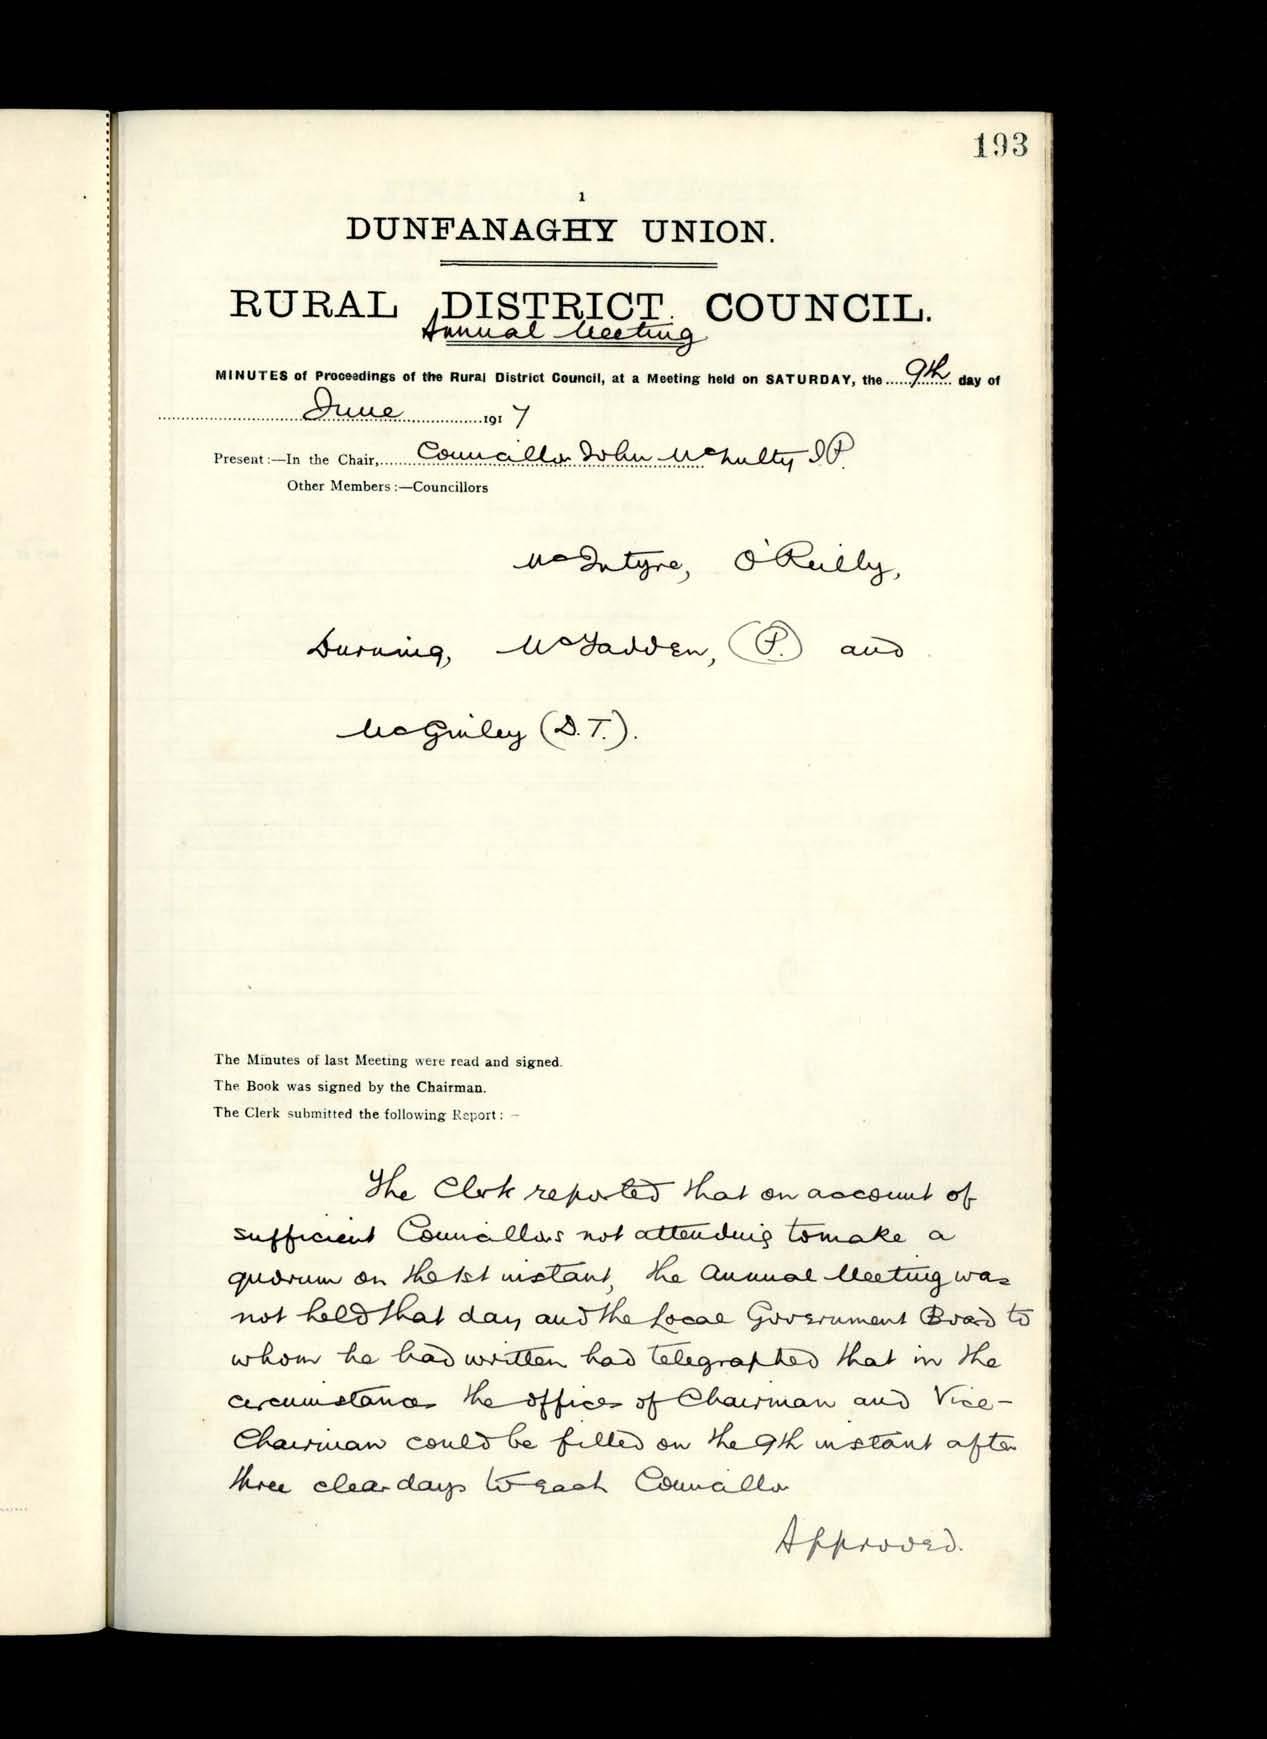 193
1
DUNFANAGHY UNION.
RURAL DISTRICT COUNCIL.
Annual Meeting
MINUTES of Proceedings of the Rural District Council, at a Meeting held on SATURDAY, the 9th day of
June 1917
Present :—In the Chair, Councillor John McNulty J.P.
Other Members :—Councillors
McIntyre, O'Reilly,
Durning, McFadden, (P.) and
McGinley (D.T.).
The Minutes of last Meeting were read and signed.
The Book was signed by the Chairman.
The Clerk submitted the following Report: —
The Clerk reported that on account of
sufficient Councillors not attending to make a
quorum on the 1st instant, the Annual Meeting was
not held that day and the Local Government Board to
whom he had written had telegraphed that in the
circumstances the offices of Chairman and Vice-
Chairman could be filled on the 9th instant after
three clear days to each Councillor
Approved.